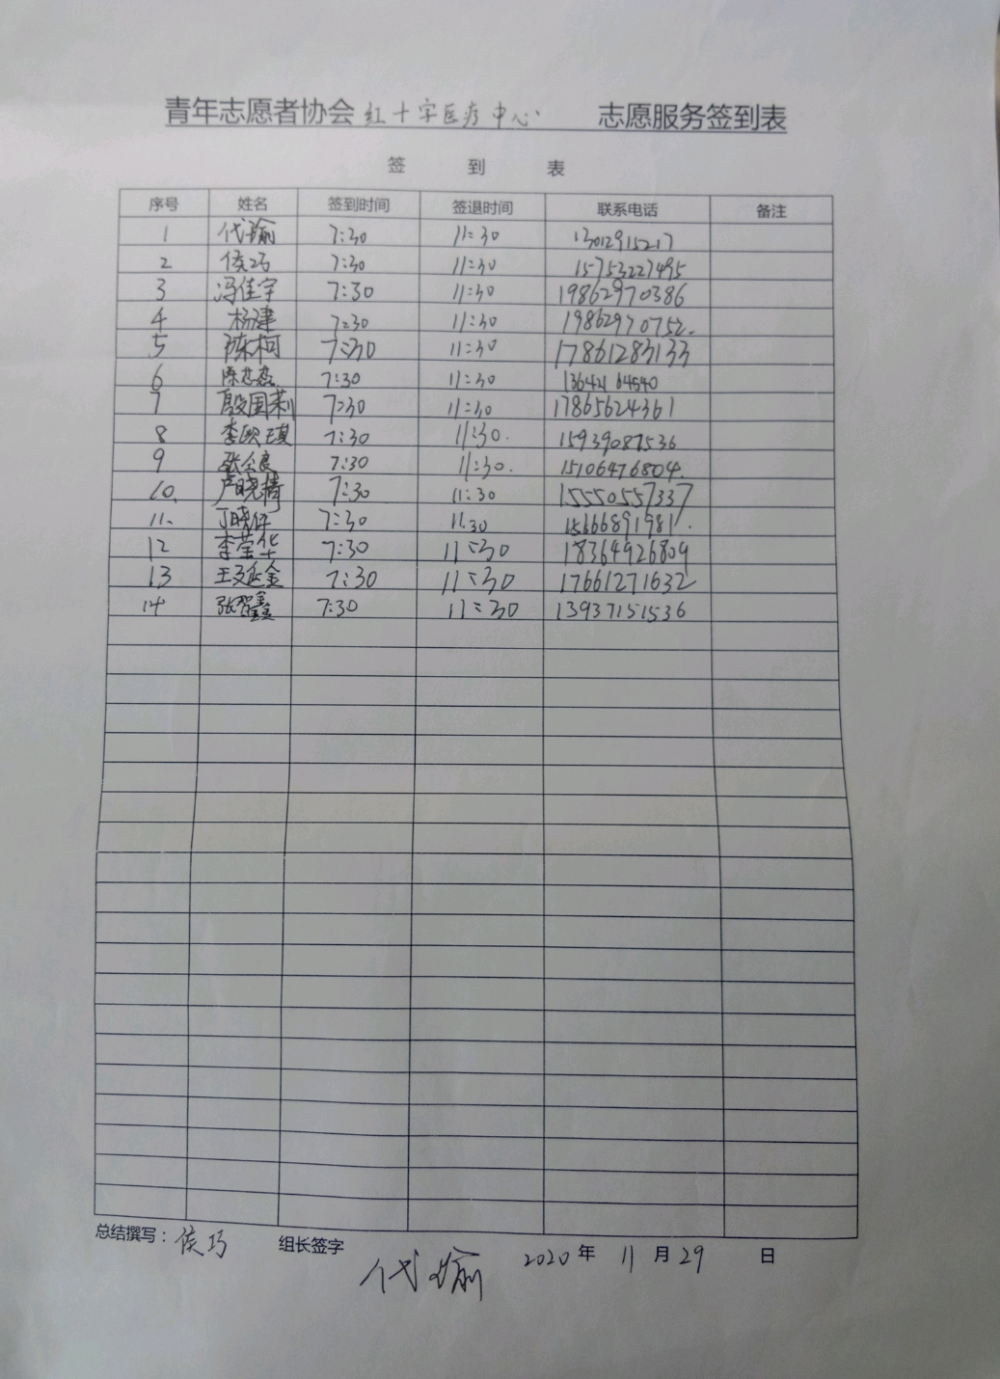 青年志愿者协会红十字医疗中心 志愿服务签到表
签 到 表
序号 姓名 签到时间 签退时间 联系电话 备注
1 代瑜 7:30 11:30 13012915217
2 侯巧 7:30 11:30 15753227495
3 冯佳宇 7:30 11:30 19862970386
4 杨建 7:30 11:30 19862970752.
5 陈柯 7:30 11:30 17861283133
6 7:30 11:30
7 殷国莉 7:30 11:30 17865624361
8 7:30 11:30. 15939087536
9 7:30 11:30. 15106476804.
10. 卢晓楠 7:30 11:30 15550557337
11. 丁晓仟 7:30 11.30 15666891981.
12 李荣华 7:30 11:30 18364926809
13 王延金 7:30 11:30 17661271632
14 7:30 11:30 13937151536
总结撰写：侯巧 组长签字 代瑜 2020年 11月29日